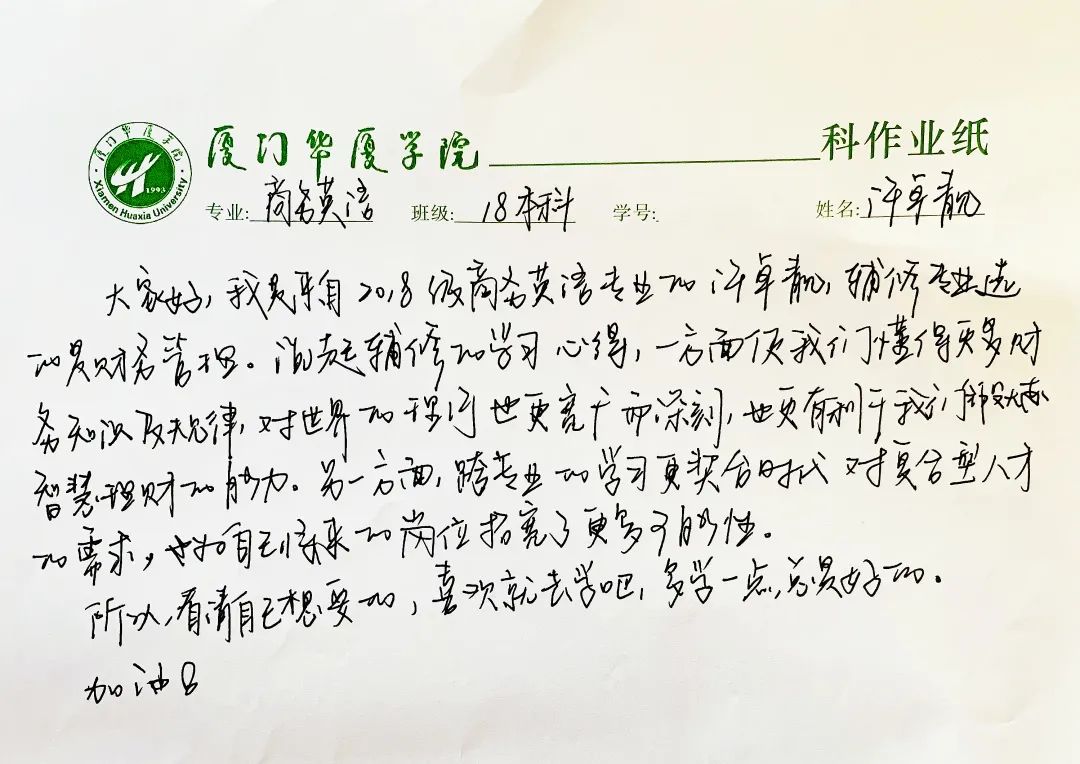 厦门华厦学院
Xiamen Huaxia University
1993
厦门华厦学院 科作业纸
专业: 商务英语 班级: 18本科 学号: 姓名: 许卓靓
大家好,我是来自2018级商务英语专业的许卓靓,辅修专业选
的是财务管理。说起辅修的学习心得,一方面使我们懂得更多财
务知识及规律,对世界的理解也更宽广而深刻,也更有利于我们
智慧理财的能力。另一方面,跨专业的学习更契合时代对复合型人才
的需求,也给自己将来的岗位拓宽了更多可能性。
所以,看清自己想要的,喜欢就去学吧,多学一点,总是好的。
加油